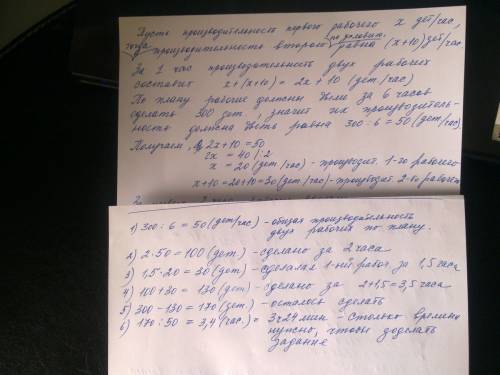 Пусть производительность первого рабочего x дет/час,
тогда производительность второго по условию равна (x+10) дет/час.
За 1 час производительность двух рабочих
составит x+(x+10) = 2x+10 (дет/час)
По плану рабочие должны были за 6 часов
сделать 300 дет., значит их производитель-
ность должна быть равна 300:6=50 (дет/час).
Получаем, 2x+10=50
2x = 40 |:2
x = 20 (дет/час) - производит. 1-го рабочего
x+10=20+10=30 (дет/час) - производит. 2-го рабочего
1) 300:6 = 50 (дет/час) - общая производительность
двух рабочих по плану.
2) 2·50=100 (дет.) - сделано за 2 часа
3) 1,5·20=30 (дет.) - сделал 1-ый рабоч. за 1,5 часа
4) 100+30 = 130 (дет.) - сделано за 2+1,5=3,5 часа
5) 300-130=170 (дет.) - осталось сделать
6) 170:50 = 3,4 (час.) = 3ч24мин - столько времени
нужно, чтобы доделать
задание